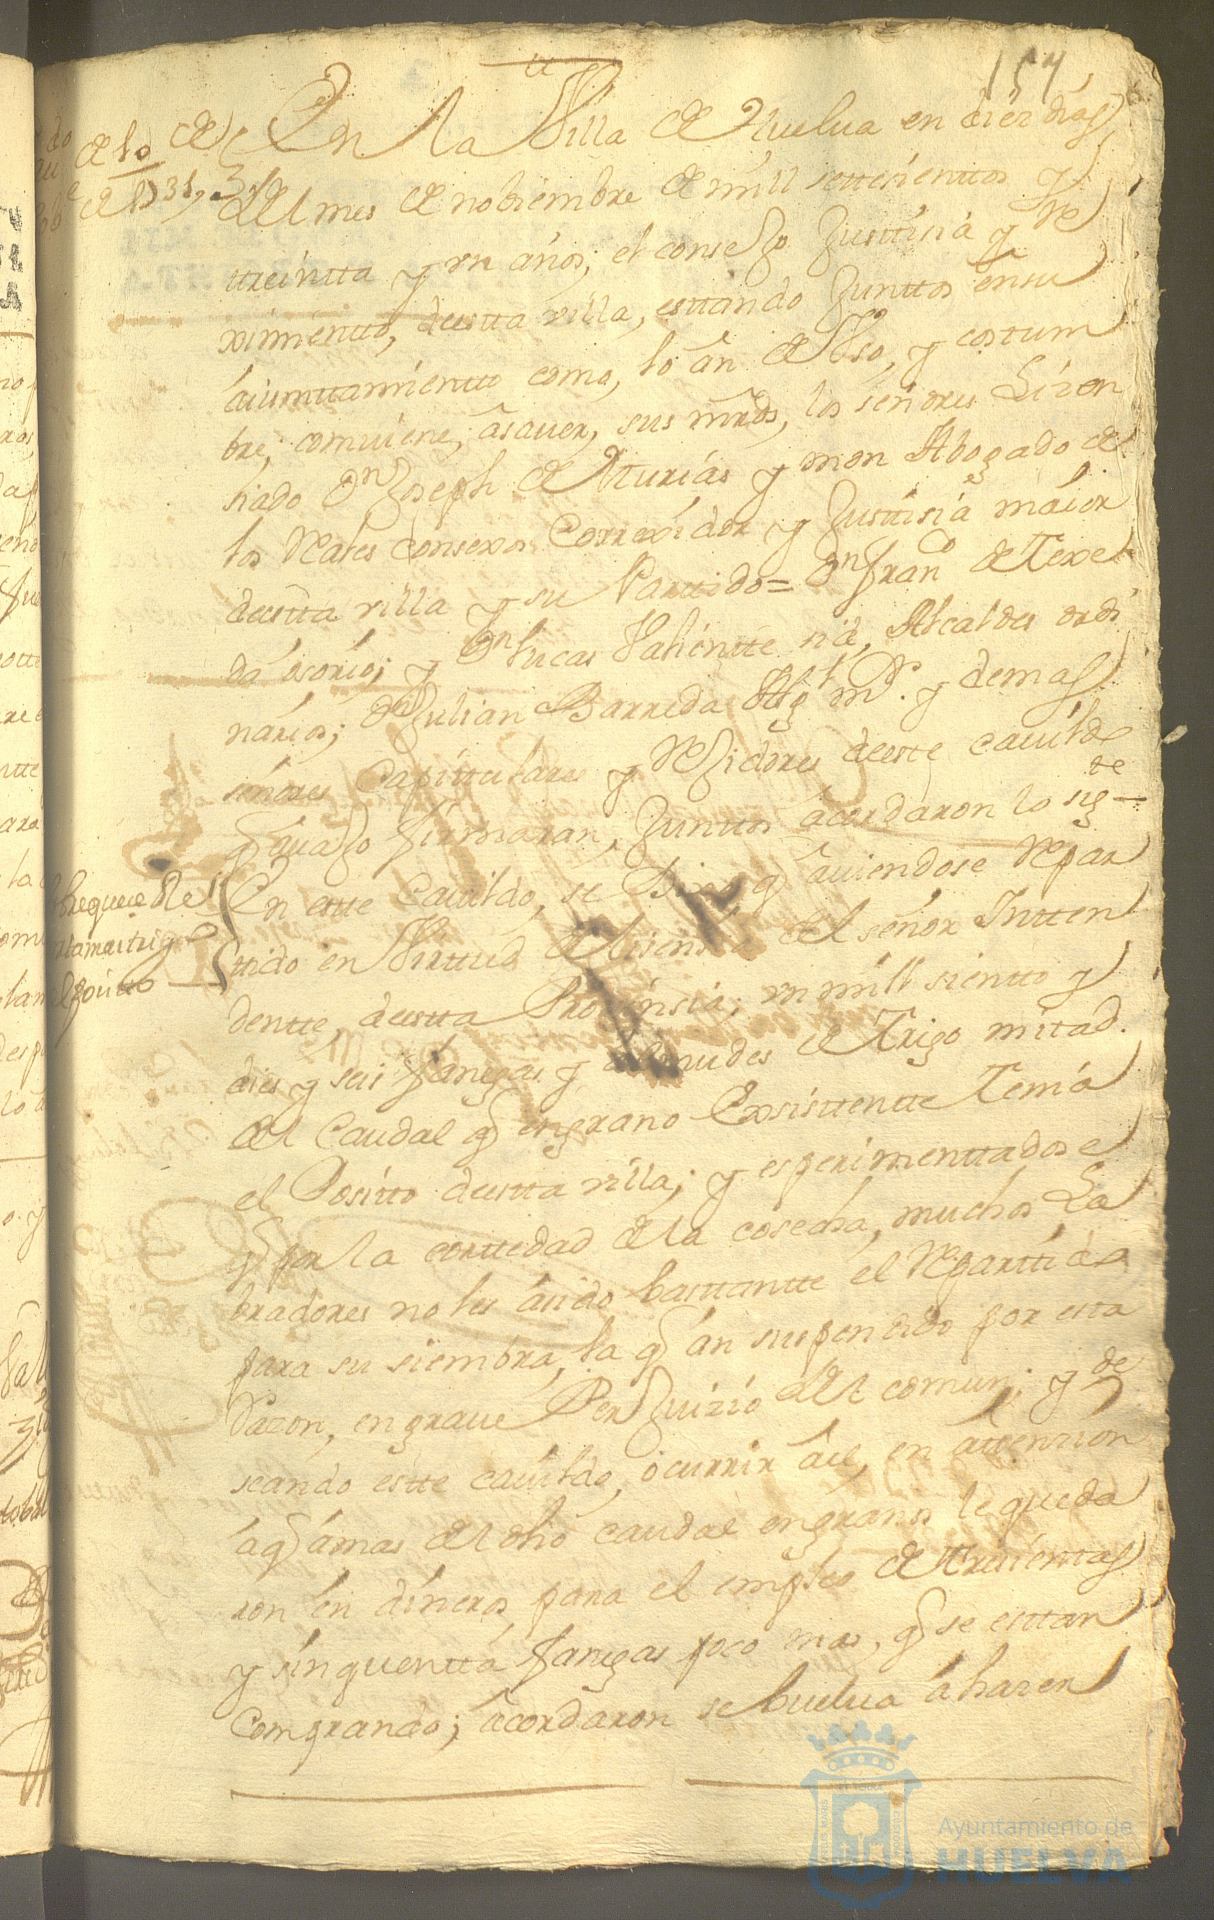 157
de 10 de
de 1731,
En la Villa de Huelua en diez dias
del mes de nobiembre de mill settesienttos y
treintta y un años, el consejo Justtisia y Re
ximientto, destta villa, esttando Junttos ensu
aiunttamientto como, lo an de Vso, y costum
bre, comuiene, asauer, sus mrds, los señores Lizen
siado Dn Joseph de Asturias y mon Abogado de
los Reales consexos Correxidor y Justtisia maior
destta villa y su Parttido= Dn Franco de Texe
da osorio; y Dn Lucas Valientte Alcaldes ordi
narios; Dn Julian Barreda Alg.l m.r y demas
señores Capittulares y Rejidores deeste cauildo
q auajo firmaran, Junttos acordaron lo sigte
En este Cauildo, se Dixo q auiendose Repar
ttido en Virttud de lisensia del señor Intten
dentte, destta Prouinsia, un mill sientto y
dies y seis fanegas y almudes de Trigo mitad
del Caudal q engrano Exsisttentte Tenia
el Positto destta villa; y esperimenttadose
q por la corttedad de la cosecha, muchos La
bradores no les a sido basttantte el Repartido
para su siembra, la q an suspendido por esta
Razon, en graue Perjuizio del comun; y de
seando este cauildo, ocurrir a el, en attenzion
a q amas del dho caudal engranos le queda
ron en dineros para el empleo de tresientas
y sinquentta fanegas poco mas, q se esttan
Comprando; acordaron se buelua a hazer
Ayuntamiento de
HUELVA